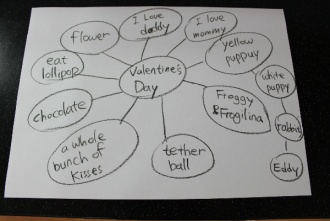 I Love
daddy
I love
mommy
flower
yellow
puppuy
eat
lollipop
Valentine's
Day
white
puppy
chocolate
Froggy
& Frogilina
rabbit
a whole
bunch of
kisses
tether
ball
Eddy